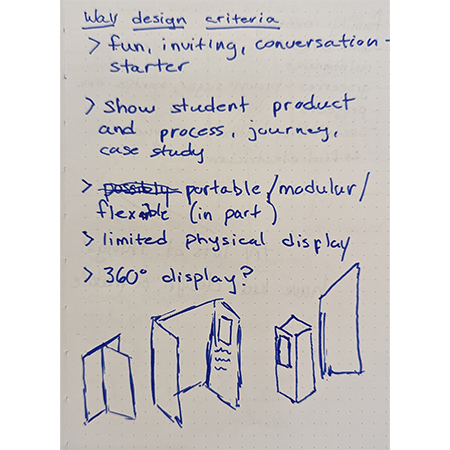 Wall design criteria
> fun, inviting, conversation-
starter
> Show student product
and process, journey,
case study
> possibly portable/modular/
flexible (in part)
> limited physical display
> 360° display?